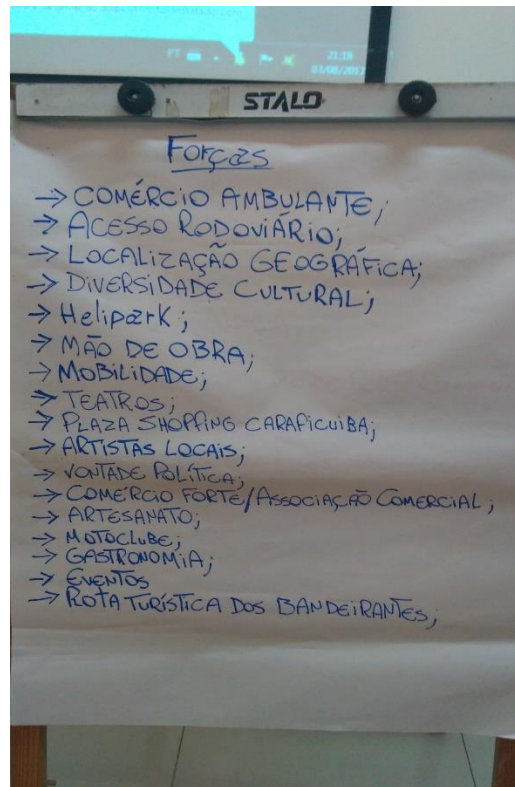 PT
21:18
03/08/2017
STALO
Forças
→ COMÉRCIO AMBULANTE;
→ ACESSO RODOVIÁRIO;
→ LOCALIZAÇÃO GEOGRÁFICA;
→ DIVERSIDADE CULTURAL;
→ Helipark;
→ MÃO DE OBRA;
→ MOBILIDADE;
→ TEATROS;
→ PLAZA SHOPPING CARAPICUIBA;
→ ARTISTAS LOCAIS;
→ VONTADE POLÍTICA;
→ COMÉRCIO FORTE/ASSOCIAÇÃO COMERCIAL;
→ ARTESANATO;
→ MOTOCLUBE;
→ GASTRONOMIA;
→ EVENTOS
→ ROTA TURÍSTICA DOS BANDEIRANTES;